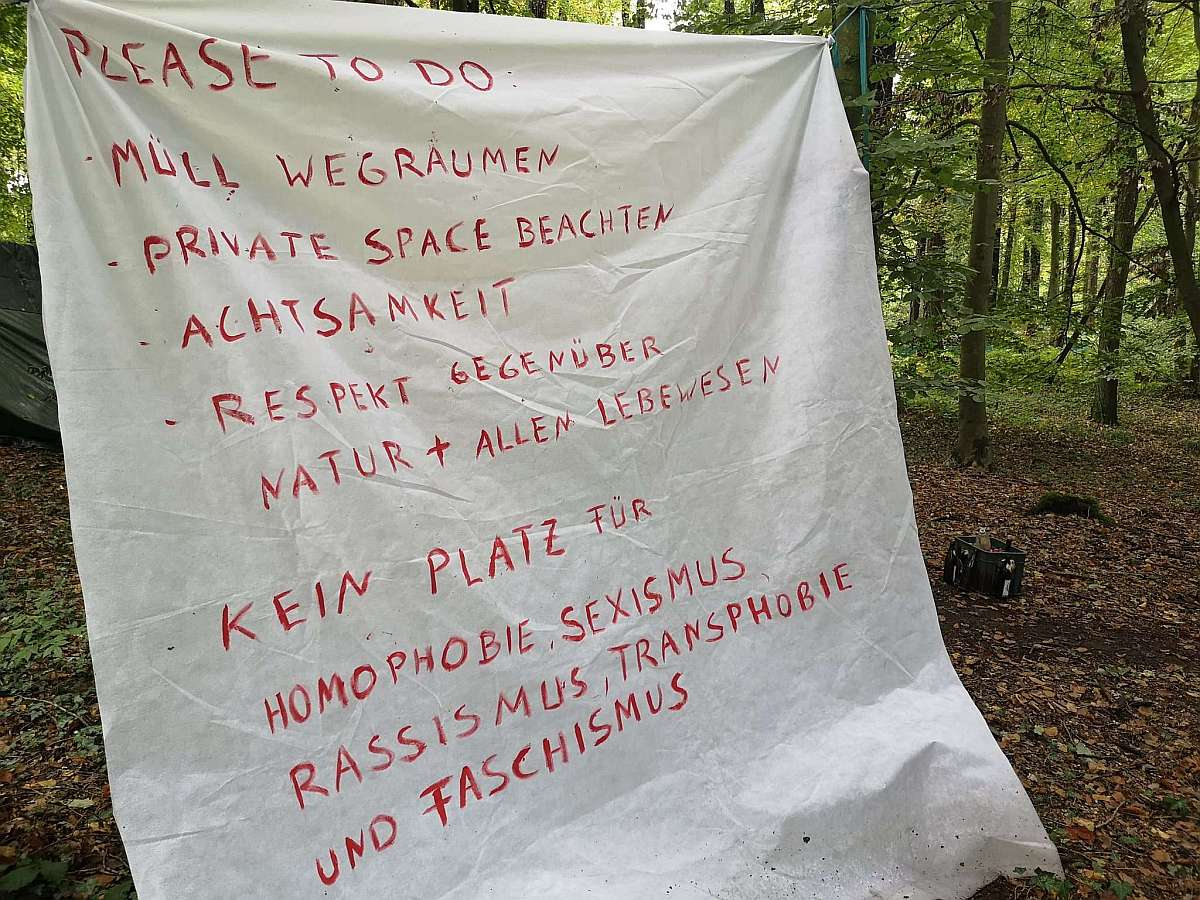 PLEASE TO DO
- MÜLL WEGRÄUMEN
- PRIVATE SPACE BEACHTEN
- ACHTSAMKEIT
- RESPEKT GEGENÜBER
NATUR + ALLEN LEBEWESEN
KEIN PLATZ FÜR
HOMOPHOBIE, SEXISMUS,
RASSISMUS, TRANSPHOBIE
UND FASCHISMUS